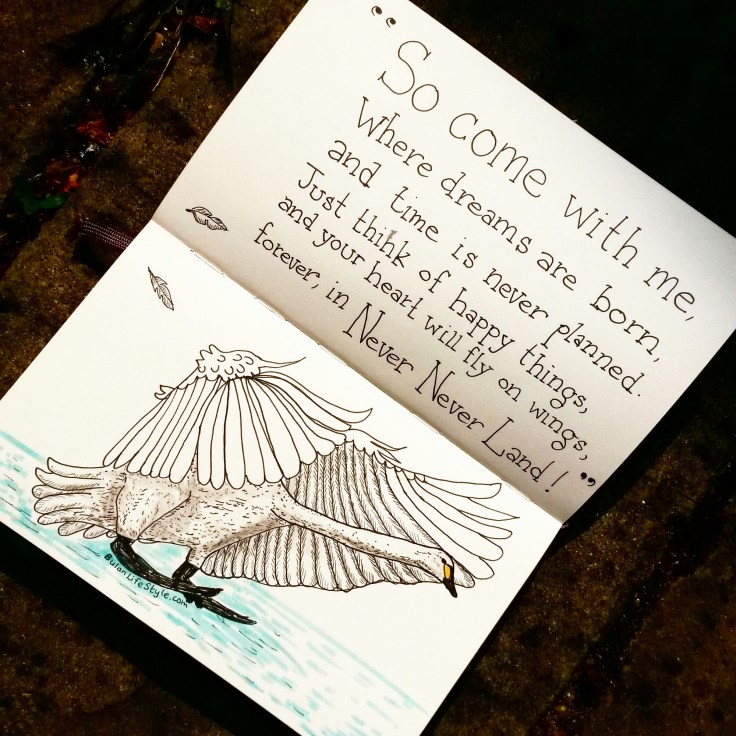 “So come with me,
Where dreams are born,
and time is never planned.
Just think of happy things,
and your heart will fly on wings,
forever, in
Never Never Land!”
BulanLifeStyle.com